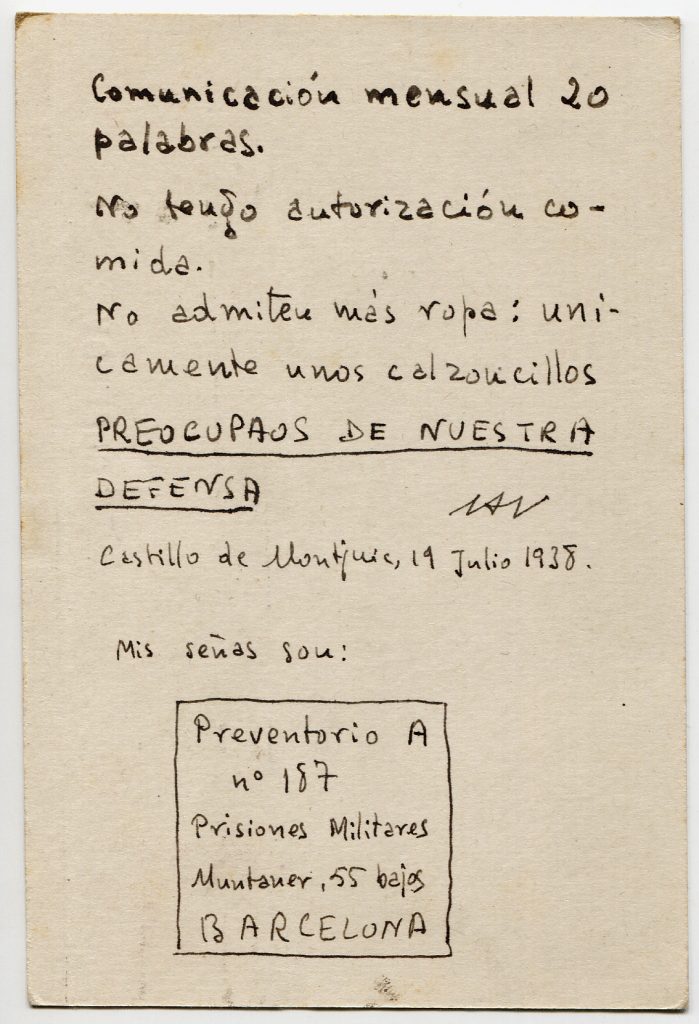 Comunicación mensual 20
palabras.
No tengo autorización co-
mida.
No admiten más ropa: uni-
camente unos calzoncillos
PREOCUPAOS DE NUESTRA
DEFENSA
Castillo de Montjuic, 19 Julio 1938.
Mis señas son:
Preventorio A
nº 187
Prisiones Militares
Muntaner, 55 bajos
BARCELONA